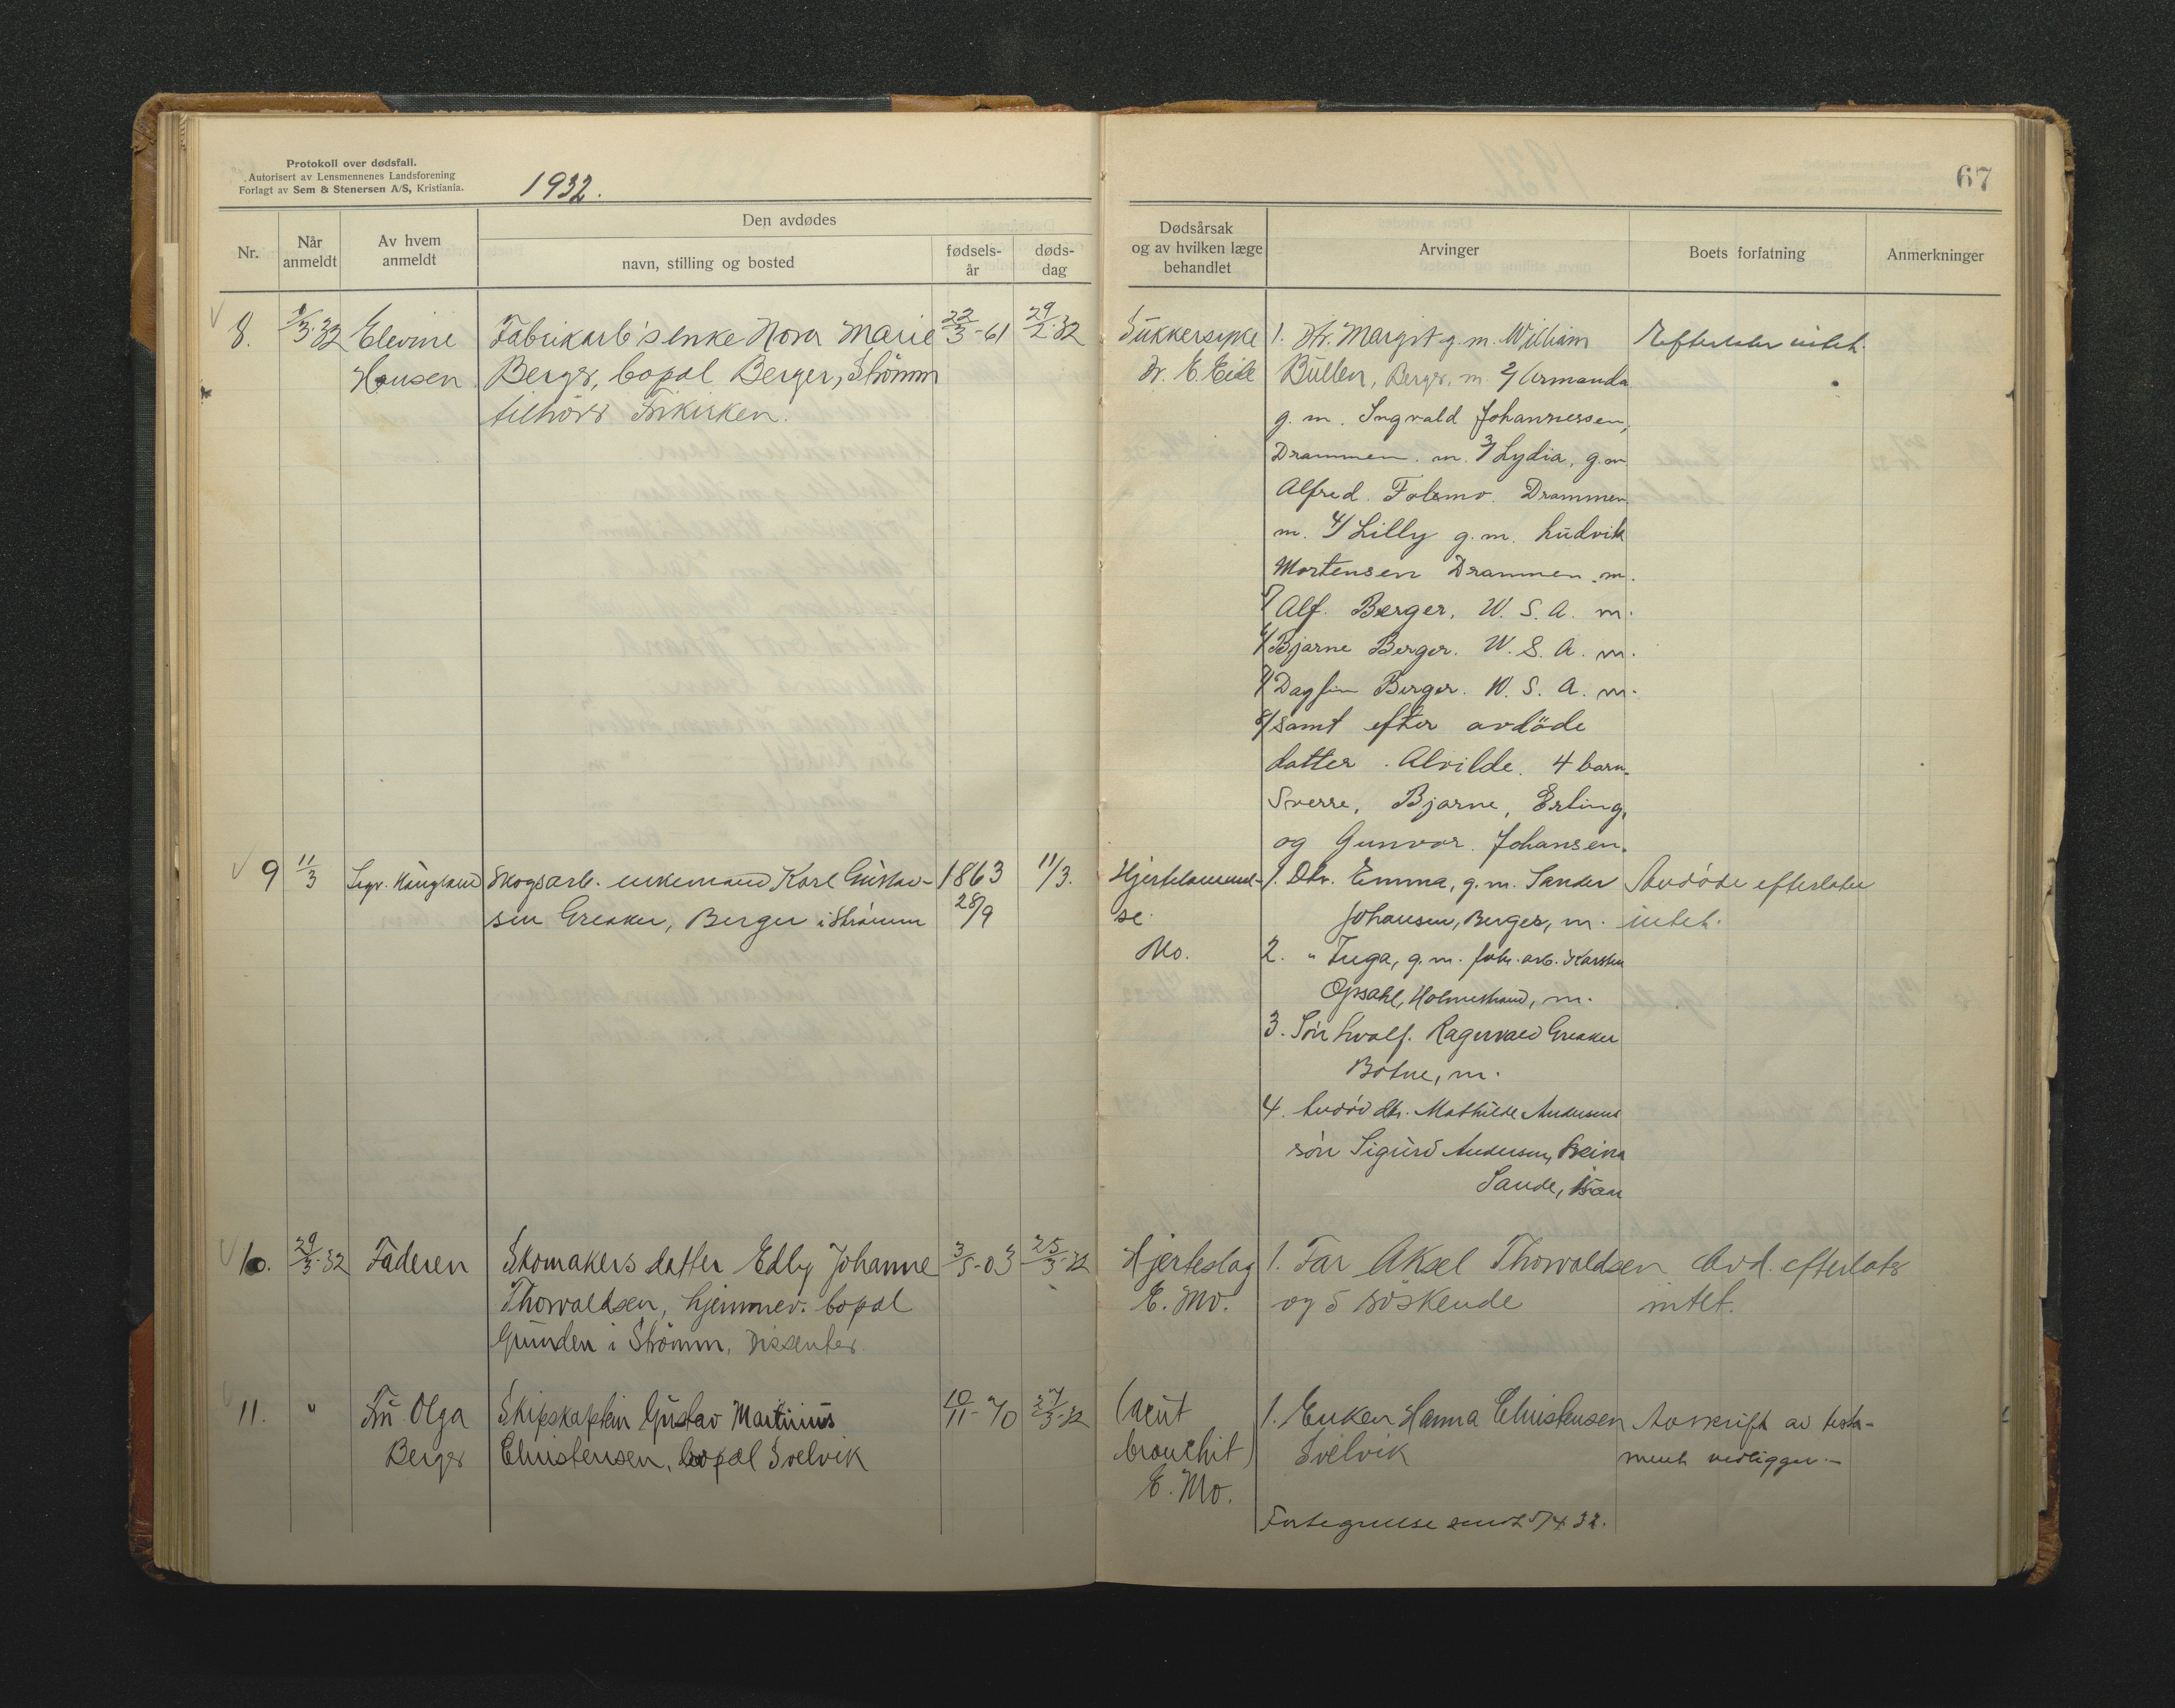 Protokoll over dødsfall.
Autorisert av Lensmennenes Landsforening
Forlagt av Sem & Stenersen A/S, Kristiania.
1932.
67
Nr.
Når
anmeldt
Av hvem
anmeldt
Den avdødes
navn, stilling og bosted
fødsels-
år
døds-
dag
Dødsårsak
og av hvilken læge
behandlet
Arvinger
Boets forfatning
Anmerkninger
8.
1/3-32
Elevine
Hansen
Fabrikarb's enke Nora Marie
Berger, bopal Berger, Strömm
tilhörer Frikirken.
22/3-61
29/2-32
Sukkersyke
Dr. E. Eide
1. Dtr. Margit g.m. William
Bullen, Berger, m. 2/ Armanda
g. m. Ingvald Johannessen,
Drammen. m. 3/ Lydia, g.m
Alfred Folemo. Drammen
m. 4/ Lilly g.m. Ludvik
Mortensen Drammen. m.
5/ Alf. Berger. U. S. A. m.
6/ Bjarne Berger. U. S. A. m.
7/ Dagfin Berger. U. S. A. m.
8/ samt efter avdöde
datter. Alvilde. 4 barn.
Sverre, Bjarne, Erling,
og Gunvor. Johansen.
Efterlater intet.
9
11/3
Sigv. Haugland
Skogsarb. enkemand Karl Gustav-
sen Greaker, Berger i Strömm
1863
28/9
11/3.
Hjertelammel-
se.
Mo.
1. Dtr. Emma, g.m. Sander
Johansen, Berger, m.
2. " Inga, g.m. fabr. arb. Karsten
Opsahl, Holmestrand, m.
3. Sön Ragnvald Greaker
Botne, m.
4. Avdöd dtr. Mathilde Andersens
sön Sigurd Andersen,
Sande,
Avdöde efterlater
intet.
10.
29/3-32
Faderen
Skomakers datter Edly Johanne
Thorvaldsen, hjemmev. bopal
Grunden i Strömm, Dissenter
3/5-03
25/3-32
Hjerteslag
E. Mo.
1. Far Aksel Thorvaldsen
og 5 söskende
Avd. efterlater
intet.
11.
"
Fru Olga
Berger
Skipskaptein Gustav Martinius
Christensen, bopal Svelvik
10/11-70
27/3-32
(acut
bronchit)
E. Mo.
1. Enken Hanna Christensen
Svelvik
Avskrift av testa-
ment vedligger.-
Fortegnelse sendt 5/4 32.